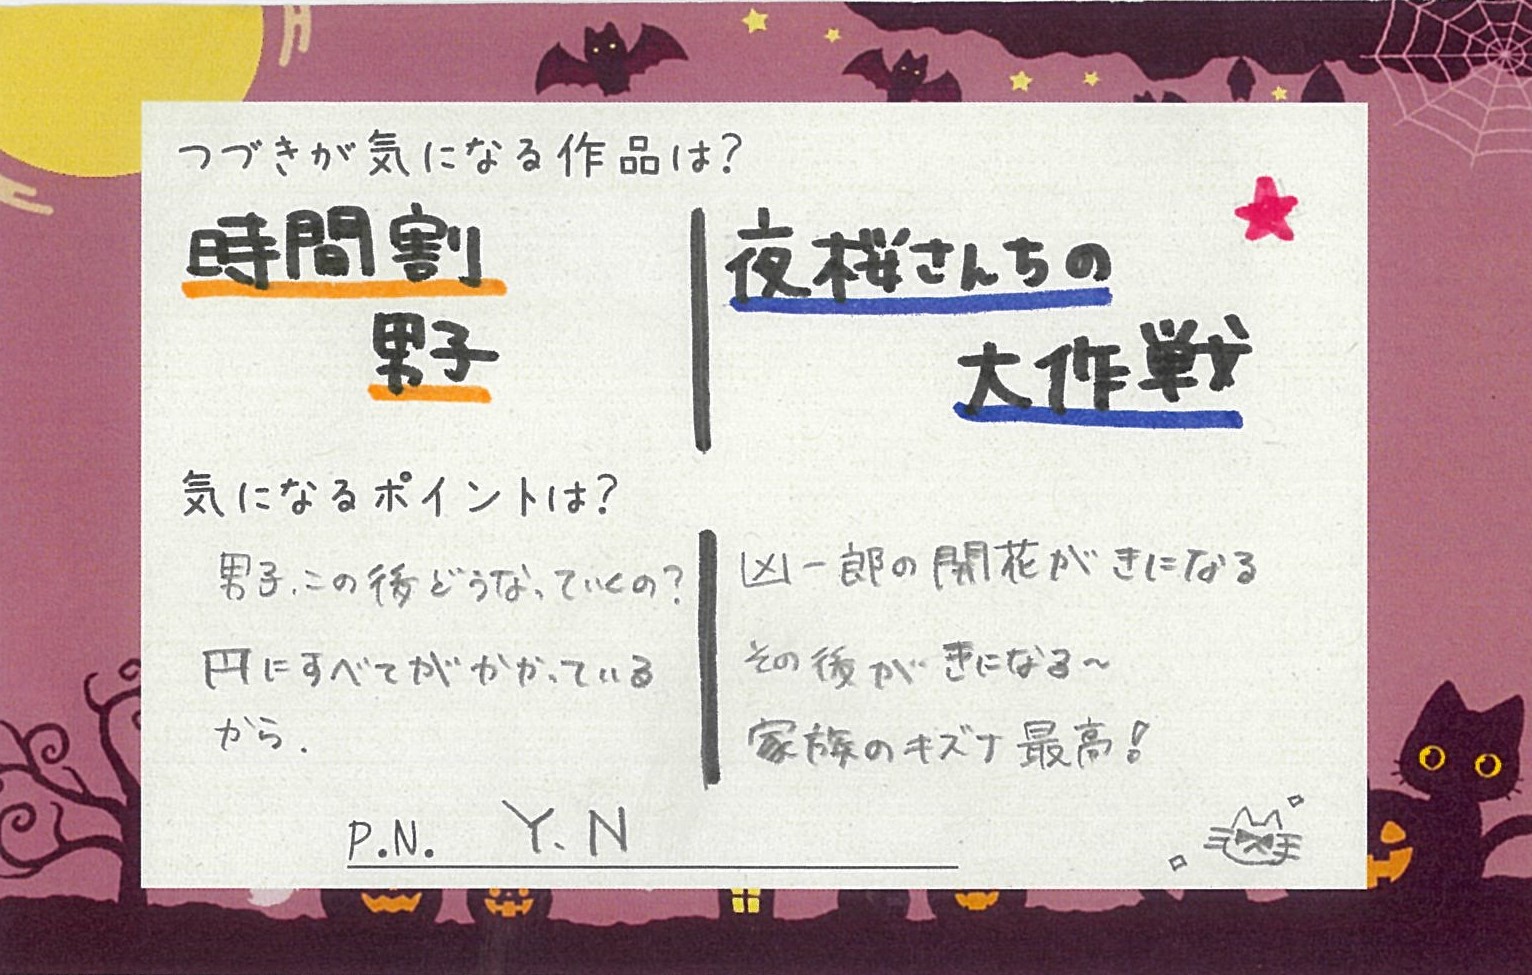 つづきが気になる作品は?
時間割
男子
夜桜さんちの
大作戦
気になるポイントは?
男子、この後どうなっていくの?
円にすべてがかかっている
から.
凶一郎の開花がきになる
その後がきになる~
家族のキズナ最高!
P.N. Y.N